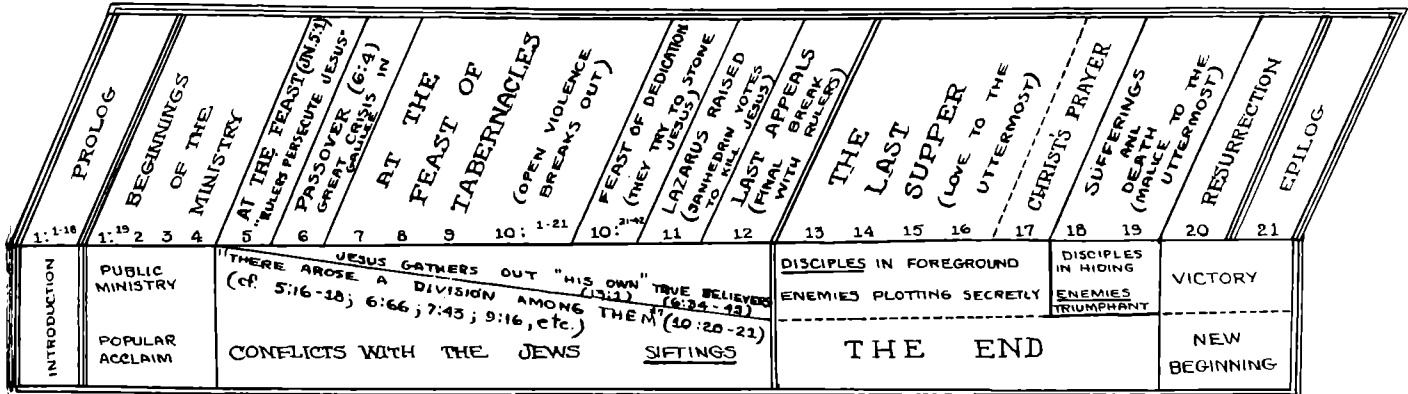 PROLOG
BEGINNINGS
OF THE
MINISTRY
AT THE FEAST (JN. 5:1)
"RULERS PERSECUTE JESUS"
PASSOVER (6:4)
GREAT CRISIS IN
GALILEE
AT THE
FEAST OF
TABERNACLES
(OPEN VIOLENCE
BREAKS OUT)
FEAST OF DEDICATION
(THEY TRY TO STONE
JESUS)
LAZARUS RAISED
(SANHEDRIN VOTES
TO KILL JESUS)
LAST APPEALS
(FINAL BREAK
WITH RULERS)
THE
LAST
SUPPER
(LOVE TO THE
UTTERMOST)
CHRISTS PRAYER
SUFFERINGS
AND
DEATH
(MALICE TO THE
UTTERMOST)
RESURRECTION
EPILOG
1:1-18 1:19 2 3 4 5 6 7 8 9 10:1-21 10:21-42 11 12 13 14 15 16 17 18 19 20 21
INTRODUCTION
PUBLIC
MINISTRY
POPULAR
ACCLAIM
JESUS GATHERS OUT "HIS OWN" TRUE BELIEVERS
(13:1)
"THERE AROSE A DIVISION AMONG THEM" (10:20-21)
(cf. 5:16-18; 6:66; 7:43; 9:16, etc.)
CONFLICTS WITH THE JEWS SIFTINGS
DISCIPLES IN FOREGROUND
ENEMIES PLOTTING SECRETLY
DISCIPLES
IN HIDING
ENEMIES
TRIUMPHANT
THE END
VICTORY
NEW
BEGINNING